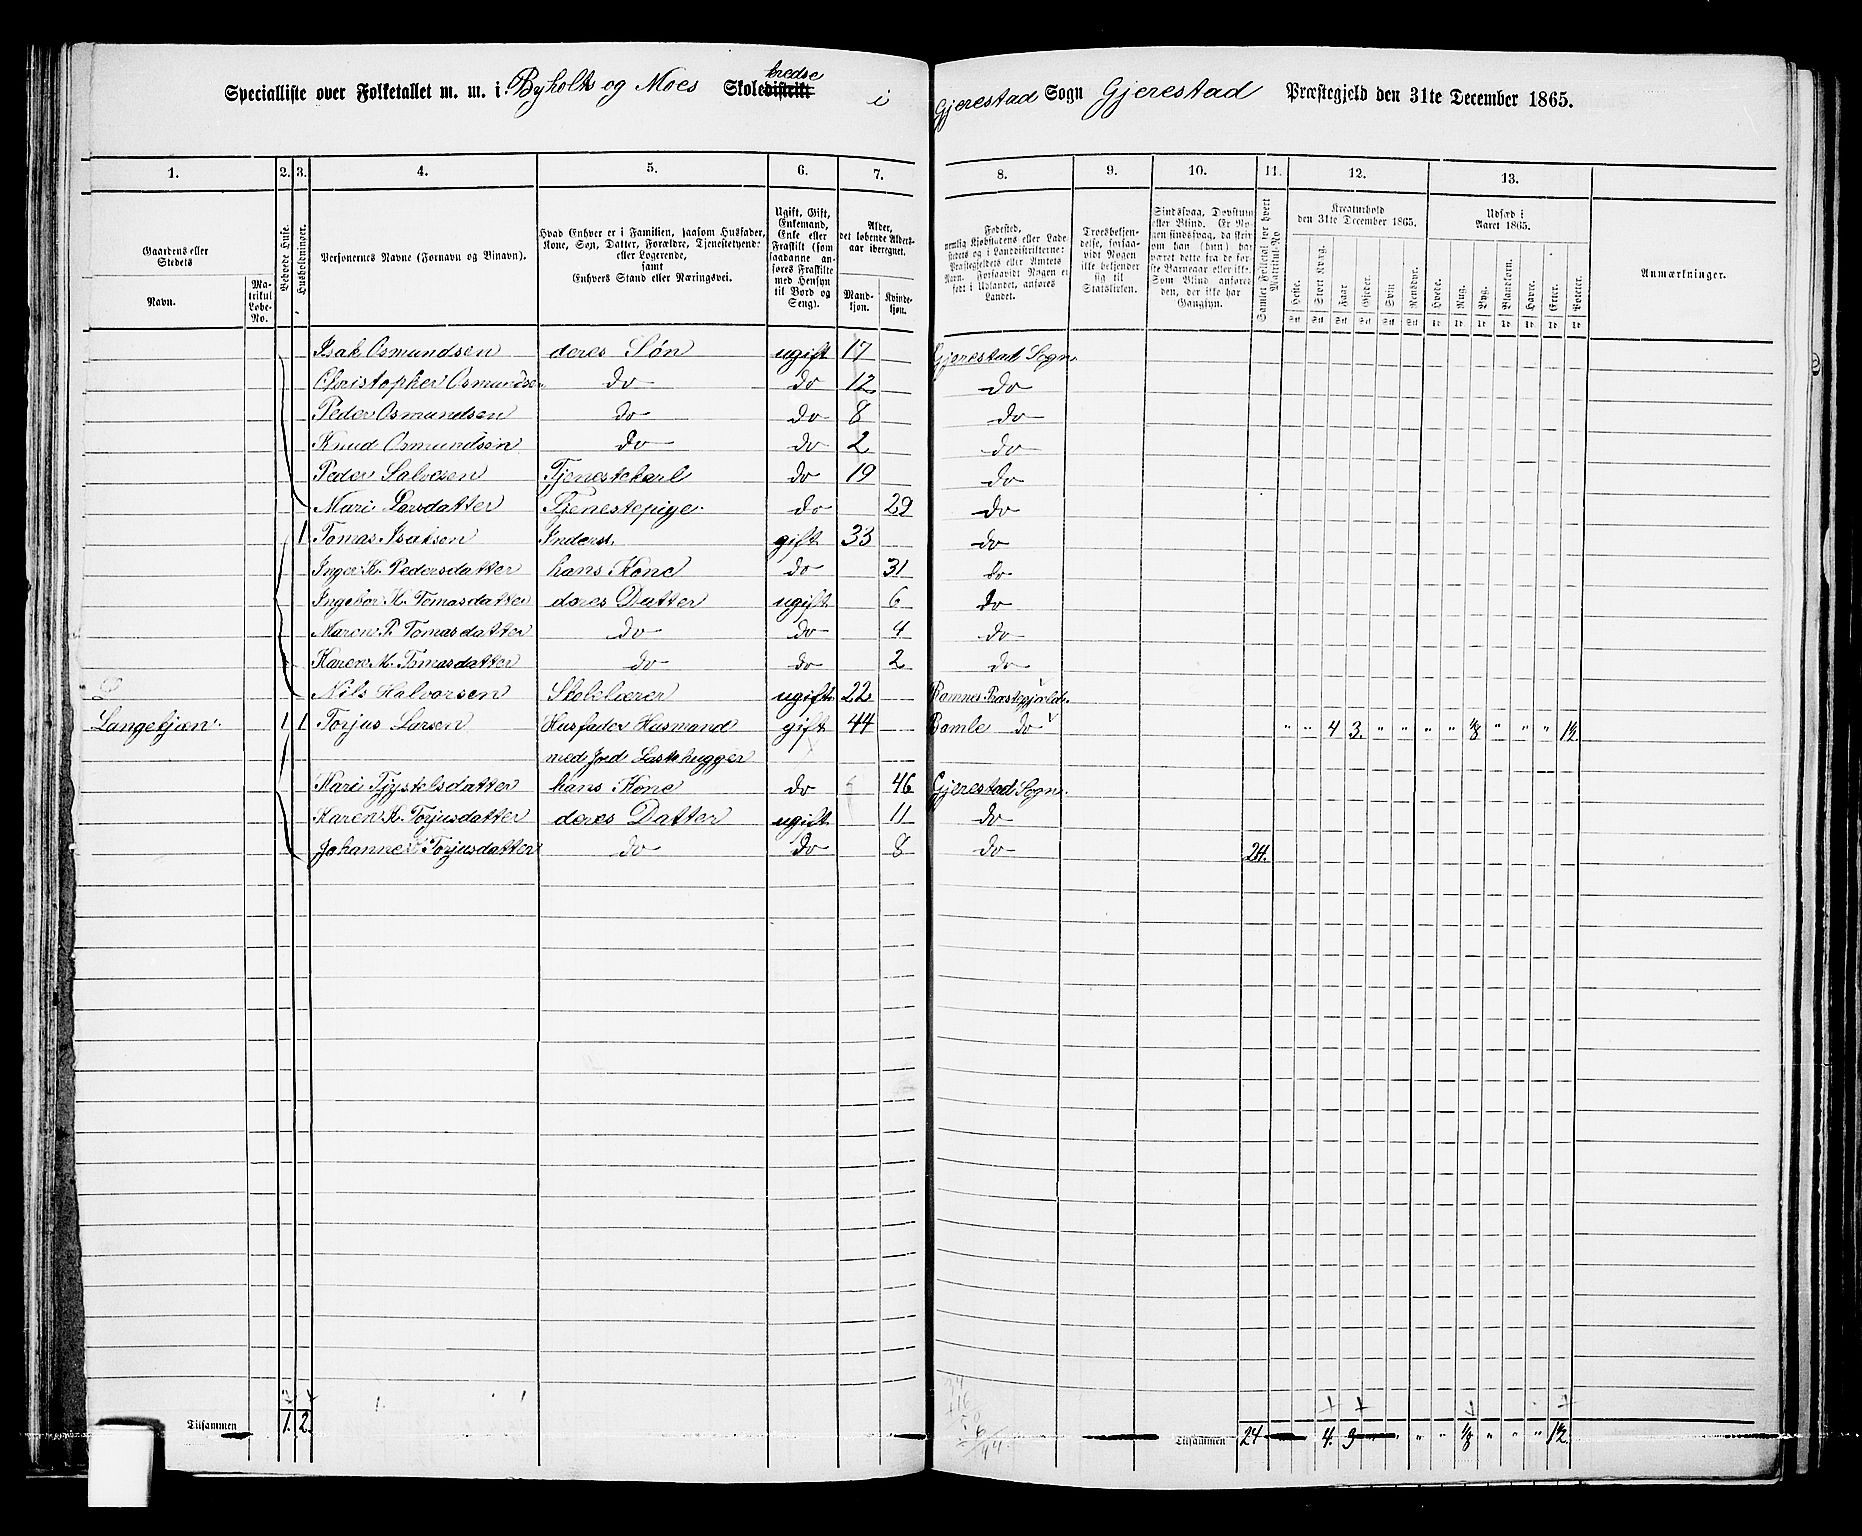 Specialliste over Folketallet m. m. i Byholts og Moes Skoledistrikt kredse i Gjerestad Sogn Gjerestad Præstegjeld den 31te December 1865.
1. 2. 3. 4. 5. 6. 7. 8. 9. 10. 11. 12. 13.
Gaardens eller Stedets
Navn.
Matrikul Løbe-No.
Beboede Huse.
Husholdninger.
Personernes Navne (Fornavn og Vinavn).
Hvad Enhver er i Familien, saasom Husfader, Kone, Søn, Datter, Forældre, Tjenestetyende eller Logerende, samt Enhvers Stand eller Næringsvei.
Ugift, Gift, Enkemand, Enke eller Fraskilt (som saadanne anføres Fraskilte med Hensyn til Bord og Seng).
Alder, det løbende Aldersaar iberegnet.
Mandkjøn.
Kvindekjøn.
Fødested,
Troesbekjendelse, forsaavidt Nogen ikke bekjender sig til Statskirken.
Samlet Folketal for hvert Matrikul-No
Kreaturhold den 31te December 1865.
Heste. Stort Kvæg. Faar Gjeder Svin Rensdyr.
Udsæd i Aaret 1865.
Hvede. Rug. Byg. Blandkorn. Havre. Erter. Poteter.
Anmærkninger.
Isak Osmundsen deres Søn ugift 17 Gjerestad Sogn
Christopher Osmundsen do do 12 do
Peder Osmundsen do do 8 do
Knud Osmundsen do do 2 do
Peder Salvesen Tjenestekarl do 19 do
Mari Larsdatter Tjenestepige do 29 do
1 Tomas Isaksen Inderst gift 33 do
Inger K. Pedersdatter hans Kone do 31 do
Ingebor K. Tomasdatter deres Datter ugift 6 do
Maren P. Tomasdatter do do 4 do
Karen M. Tomasdatter do do 2 do
Nils Halvorsen Skolelærer ugift 22 Præstegjeld
Langekjæn 1 1 Torjus Larsen Husfader Husmand gift 44 Bamle do " " 4 3 " " " " 1/8 " " " 1½
med Jord
Kari hans Kone do 46 Gjerestad Sogn
Karen K. Torjusdatter deres Datter ugift 11 do
Johanne Torjusdatter do do 8 do 24.
Tilsammen 1. 2. Tilsammen 24 4. 3 " " " " 1/8 " " " 1½